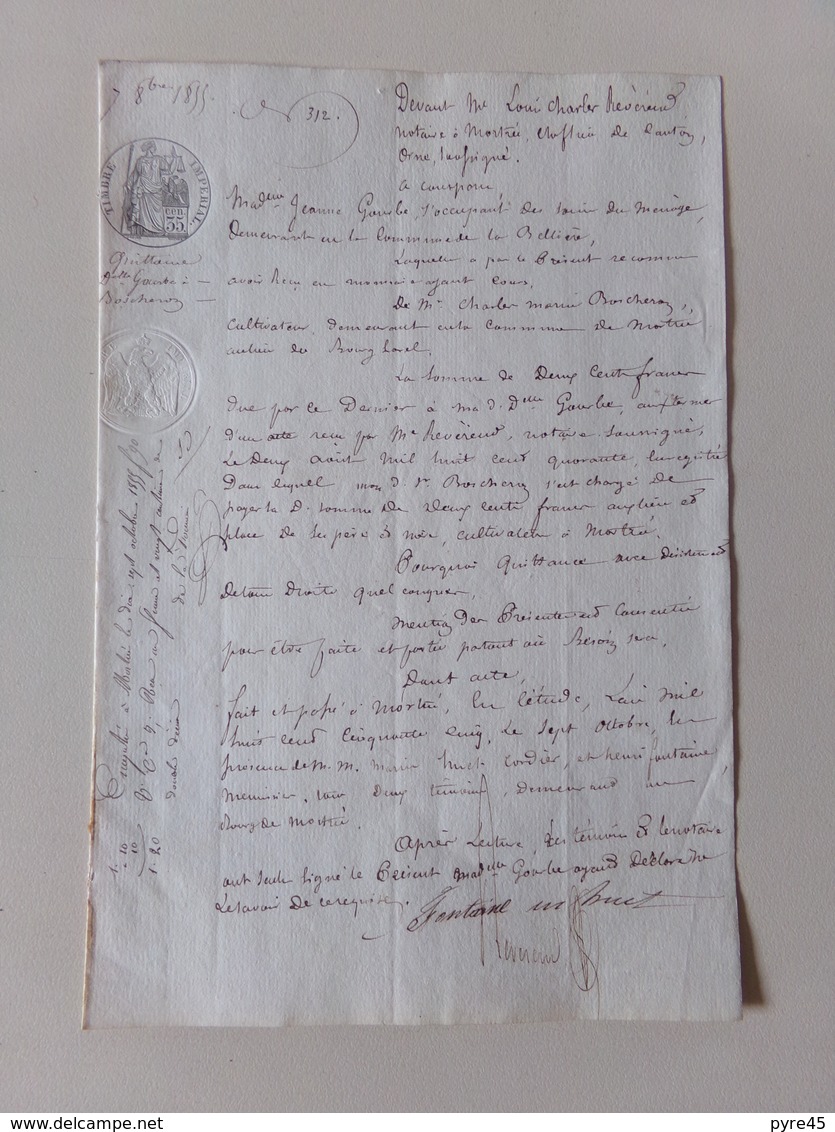 7 8bre 1855
312.
TIMBRE IMPERIAL
35
Quittance
Delle Gourbe à
Boscheron
Devant Me Louis Charles Revèrend
notaire à Mortrée, cheflieu de Canton,
Orne, soussigné.
a comparu,
Madelle Jeanne Gourbe, s'occupant des soins du Ménage,
demeurant en la Commune de la Bellière,
Laquelle a par le Présent reconnu
avoir Reçu en monnaie ayant cours,
De Mr. Charles Marin Boscheron,
Cultivateur, demeurant en la commune de Mortrée
au lieu du Bourg
La Somme de Deux Cents francs
Due par ce Dernier à ma d. Delle Gourbe, aux termes
d'un acte reçu par Me Revèrend, notaire soussigné,
Le Deux août mil huit cent quarante, Enregistré
Dans lequel mon d. Sr Boscheron s'est chargé de
payer la D. somme de Deux cents francs au lieu et
place de ses père et mère, cultivateurs à Mortrée.
Pourquoi Quittance avec désistement
de tous Droits quelconques,
Mention Des Présentes est Consentie
pour être faite et portée partout où Besoin sera,
Dont acte,
fait et passé à Mortrée, En l'étude, L'an mil
huit cent Cinquante cinq, Le Sept Octobre, En
présence de M. M. Marin huet Cordier, et henri fontaine
Menuisier, tous Deux témoins, demeurant au
Bourg de Mortrée.
Après Lecture, Les témoins et le notaire
ont seuls Signé le Présent Madelle Gourbe ayant Déclaré ne
Le savoir De ce requise.
Fontaine
huet
Revèrend
Enregistré à Mortrée le dix sept octobre 1855 fo 90
Reçu un franc et vingt centimes de
double décime
1.
10
10
1.20
delcampe.net
pyre45